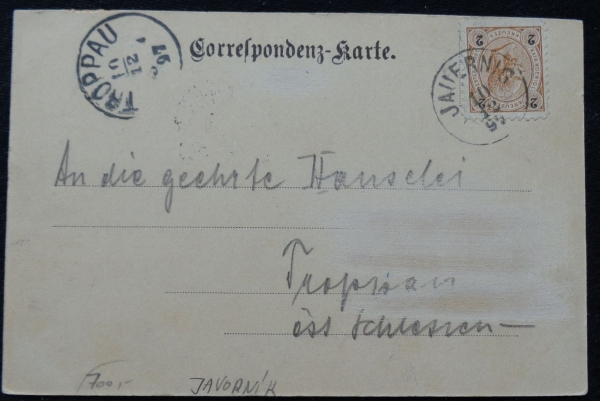 Correspondenz-Karte.
TROPPAU
10
12
97
JAUERNIG
10
2
2
2
2
An die geehrte
Troppau
öst Schlesien
700,-
JAVORNÍK